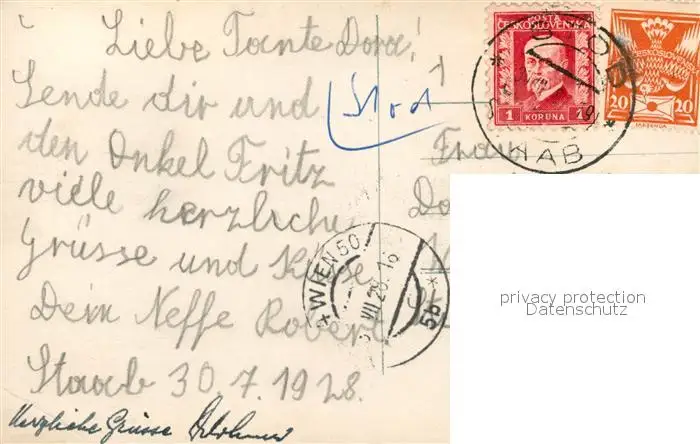 Liebe Tante Dora!
Sende dir und
den Onkel Fritz
viele herzliche
Grüsse und Küsse
Dein Neffe Robert
Staab 30.7.1928.
Herzliche Grüsse
Stod
Frau
POSTA
ČESKOSLOVENSKÁ
1 KORUNA 1
ČESKOSLOVENSKÁ
20 20
*WIEN 50*
VII 28. 16
5b
privacy protection
Datenschutz